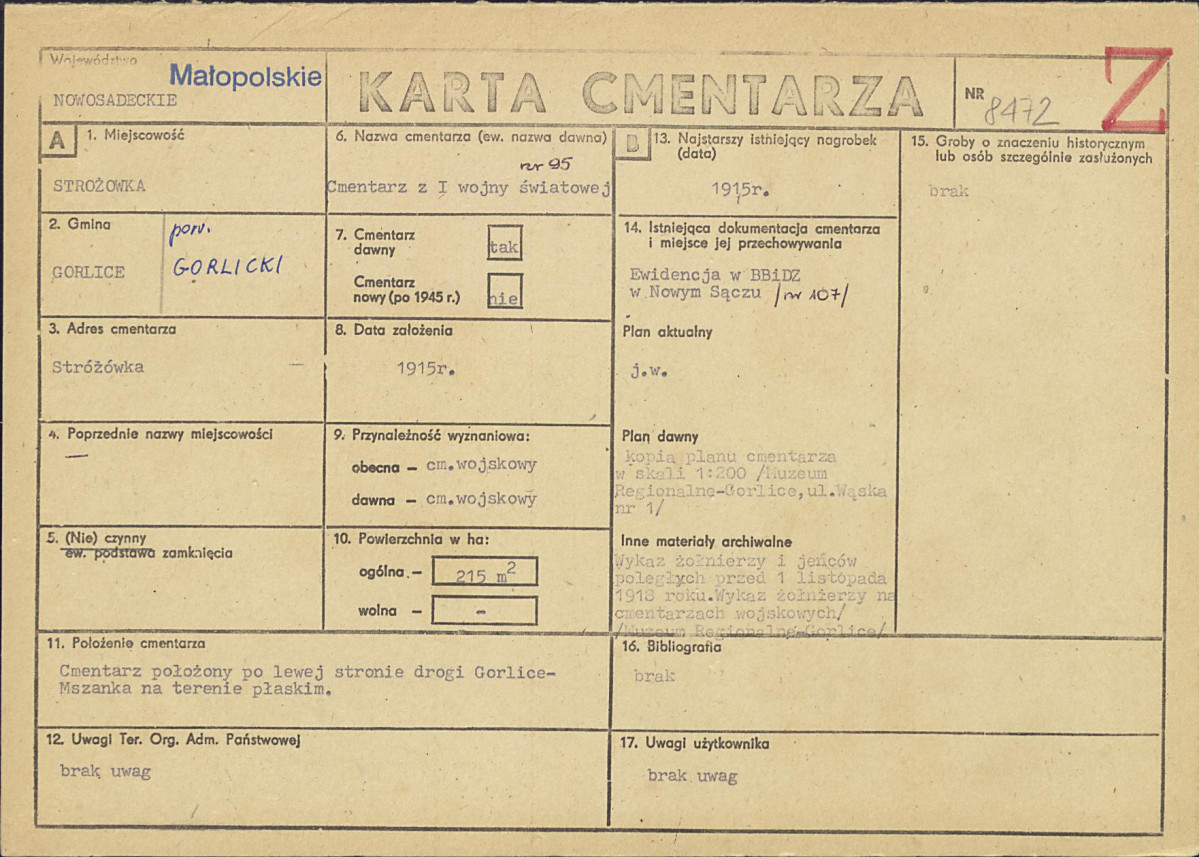 Województwo
Małopolskie
NOWOSADECKIE
KARTA CMENTARZA
NR 8472
Z
A
1. Miejscowość
STROŻOWKA
2. Gmina
GORLICE
pow.
GORLICKI
3. Adres cmentarza
Stróżówka —
4. Poprzednie nazwy miejscowości
—
5. (Nie) czynny
ew. podstawa zamknięcia
6. Nazwa cmentarza (ew. nazwa dawna)
nr 95
Cmentarz z I wojny światowej
7. Cmentarz
dawny
tak
Cmentarz
nowy (po 1945 r.)
nie
8. Data założenia
1915r.
9. Przynależność wyznaniowa:
obecna — cm.wojskowy
dawna — cm.wojskowy
10. Powierzchnia w ha:
ogólna — 215 m2
wolna — -
11. Położenie cmentarza
Cmentarz położony po lewej stronie drogi Gorlice-
Mszanka na terenie płaskim.
12. Uwagi Ter. Org. Adm. Państwowej
brak uwag
B
13. Najstarszy istniejący nagrobek
(data)
1915r.
14. Istniejąca dokumentacja cmentarza
i miejsce jej przechowywania
Ewidencja w BBiDZ
w Nowym Sączu /nr 107/
Plan aktualny
j.w.
Plan dawny
kopia planu cmentarza
w skali 1:200 /Muzeum
Regionalne-Gorlice,ul.Wąska
nr 1/
Inne materiały archiwalne
Wykaz żołnierzy i jeńców
poległych przed 1 listopada
1918 roku.Wykaz żołnierzy na
cmentarzach wojskowych/
/Muzeum Regionalne-Gorlice/
15. Groby o znaczeniu historycznym
lub osób szczególnie zasłużonych
brak
16. Bibliografia
brak
17. Uwagi użytkownika
brak uwag